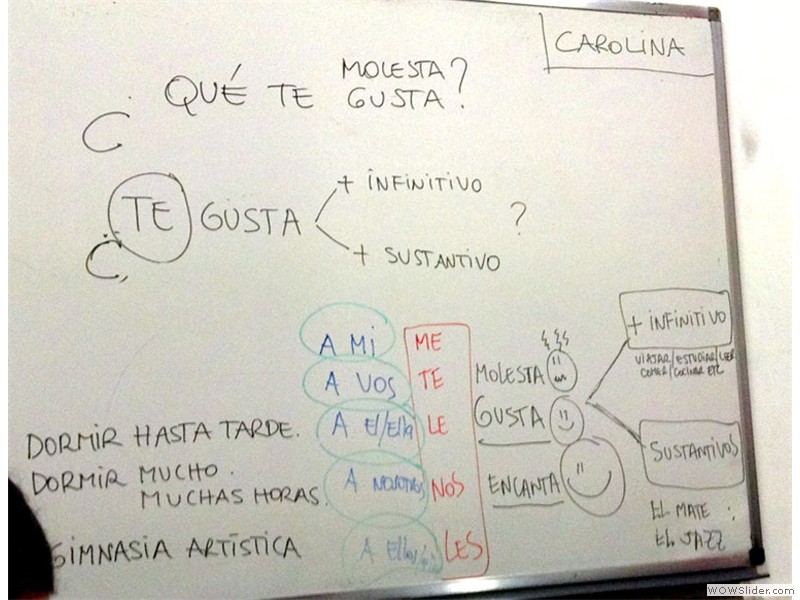 CAROLINA
¿QUÉ TE MOLESTA?
GUSTA?
¿TE GUSTA + INFINITIVO
+ SUSTANTIVO ?
A MI ME
A VOS TE
A El/Ella LE
A NOSOTROS NOS
A Ellos/ LES
MOLESTA
GUSTA
ENCANTA
+ INFINITIVO
VIAJAR/ESTUDIAR/LEER
COMER/COCINAR ETC
SUSTANTIVOS
EL MATE :
EL JAZZ
DORMIR HASTA TARDE.
DORMIR MUCHO.
MUCHAS HORAS.
GIMNASIA ARTÍSTICA
WOWSlider.com